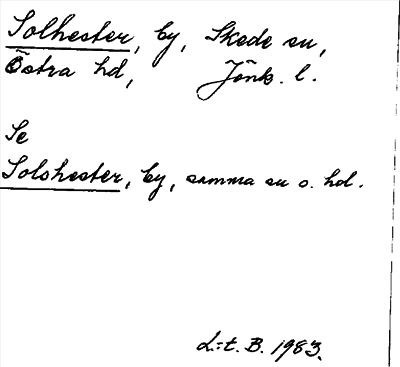 Solhester, by, Skede sn,
Östra hd, Jönk. l.
Se
Solshester, by, samma sn o. hd.
L:t. B. 1983.